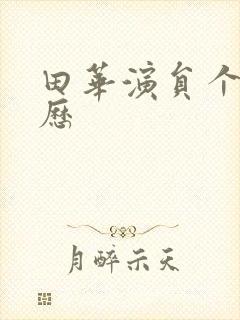 田華演員个
歷
月醉示天